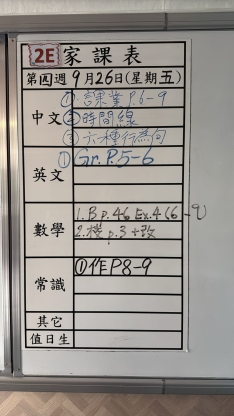 2E 家課表
第四週 9月26日(星期五)
中文 ①課業 P.6-9
②時間線
③六種行為句
英文 ①Gr. P.5-6
數學 1. B p.46 Ex.4(6-9)
2. 樓 p.3 + 改
常識 ①作 P8-9
其它
值日生